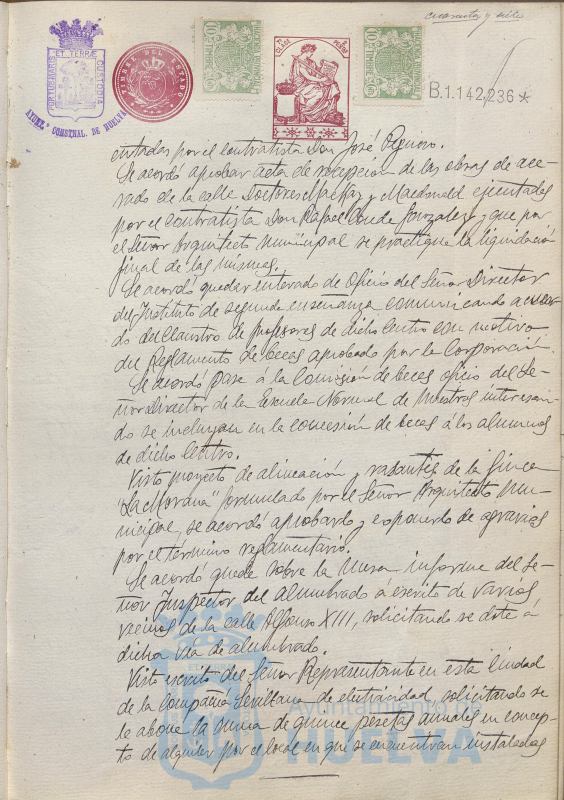 cuarenta y siete
PORTUS MARIS ET TERRÆ CUSTODIA
AYUNT.º CONSTNAL. DE HUELVA
TIMBRE DEL ESTADO
B.1.142,236*
entadas por el contratista Don José
Se acordó aprobar acta de recepción de las obras de ace-
rado de la calle Doctores Mackay y Macdonald ejecutadas
por el contratista Don Rafael Conde Gonzalez y que por
el Señor Arquitecto Municipal se practique la liquidación
final de las mismas.
Se acordó quedar enterado de Oficio del Señor Director
del Instituto de segunda enseñanza comunicando acuer-
do del Claustro de Profesores de dicho Centro con motivo
del Reglamento de becas aprobado por la Corporación.
Se acordó pase a la Comisión de becas oficio del Se-
ñor Director de la Escuela Normal de Maestros interesan-
do se incluyan en la concesión de becas á los alumnos
de dicho Centro.
Visto proyecto de alineación y rasantes de la finca
"La Morana" formulado por el Señor Arquitecto Mu-
nicipal, se acordó aprobarlo y exponerlo de agravios
por el termino reglamentario.
Se acordó quede sobre la mesa informe del Se-
ñor Inspector del alumbrado á escrito de varios
vecinos de la calle Alfonso XIII, solicitando se dote á
dicha vía de alumbrado.
Visto escrito del Señor Representante en esta Ciudad
de la Compañia Sevillana de electricidad, solicitando se
le abone la suma de quince pesetas anuales en concep-
to de alquiler por el local en que se encuentran instaladas
Ayuntamiento de
HUELVA